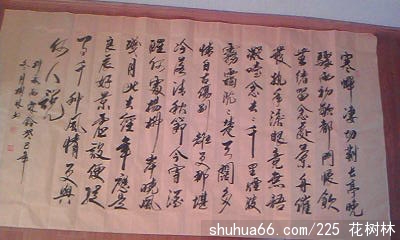 寒蝉凄切對长亭晚
骤雨初歇都門帳飲
无绪留念處蘭舟催
發执手淚眼竟無語
凝噎念去去千里煙波
暮靄沉沉楚天闊多
情自古傷離别更那堪
冷落清秋節今宵酒
醒何處楊柳岸曉風
殘月此去經年應是
良辰好景虚設便縱
有千种風情更與
何人說
柳永雨霖鈴癸巳年
冬月樹林書
shuhua66.com/225 花树林